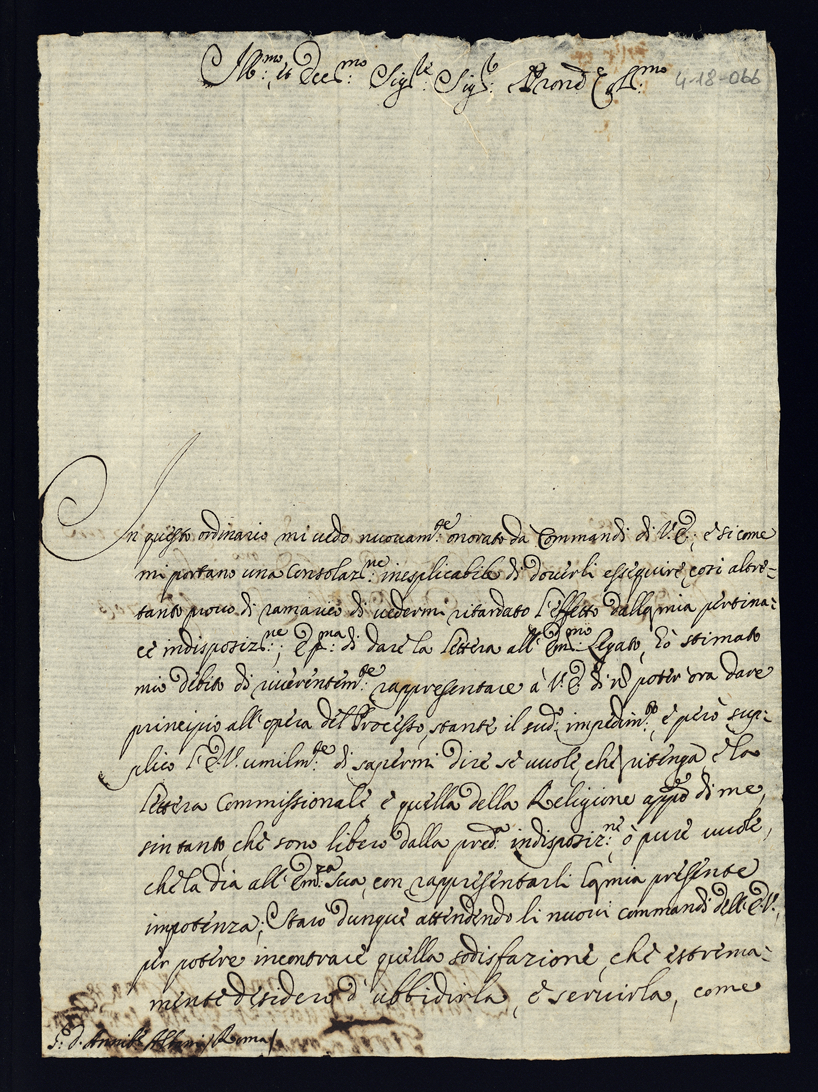 Ill:mo, et Ecc:mo Sig:re Sig:r Pron Col:mo
4-18-066
In questo ordinario mi vedo nuovam:te onorato da Commandi di V.E., e si come
mi portano una Consolaz:ne inesplicabile di doverli esseguire, cosi altre-
tanto provo di ramarico di vedermi ritardato l'effetto dalla mia pertina-
ce indisposiz:ne; E p:ma di dare la lettera all'Em:mo Legato, hò stimato
mio debito di riverentem:te rappresentare à V.E. di nõ poter ora dare
principio all'opera del Processo, stante il sud:o impedim:to, e però sup-
plico l'E.V. umilm:te di sapermi dire se vuole, che ritenga, e la
lettera Commissionale e quella della Religione app:o di me,
sin tanto, che sono libero dalla pred:a indisposiz:ne, ò pure vuole,
che la dia all'Em:za Sua, con rappresentarli la mia presente
impotenza; Starò dunque attendendo li nuovi commandi dell'E.V.,
per potere incontrare quella sodisfazione, che estrema-
mente desidero d'ubbidirla, e servirla, come
S:r D. Annib:e Albani / Roma /